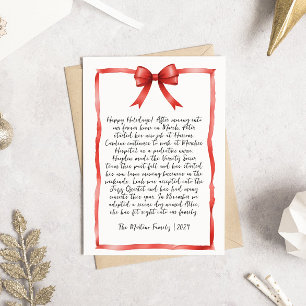 Happy Holidays! After moving into
our forever home in March, Peter
started his new job at Horizon.
Caroline continues to work at Mercher
Hospital as a pediatric nurse.
Hayden made the Varsity Swim
Team this past fall and has started
his own lawn mowing business on the
weekends. Leah was accepted into the
Jazz Quartet and has had many
concerts this year. In December we
adopted a rescue dog named Alfie,
who has fit right into our family.
The Martine Family | 2024